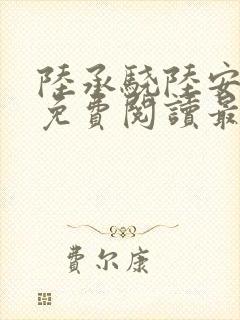 陸承驍陸安
免費閱讀最
費尔康